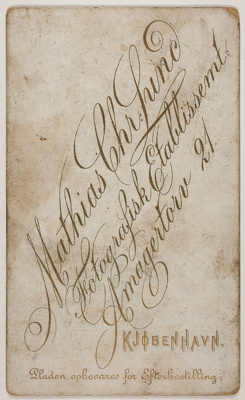 Mathias Chr. Lund
Fotografisk Etablissemt.
Amagertorv 21.
KJØBENHAVN.
Pladen opbevares for Efterbestilling.